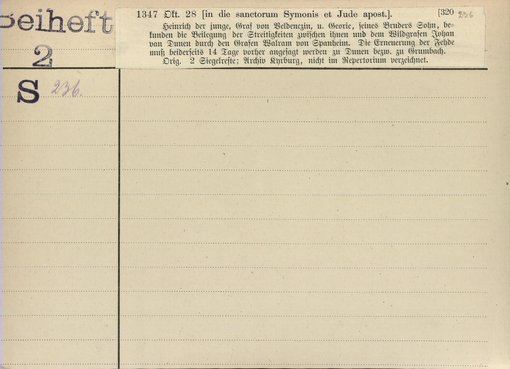 Beiheft
2
S 236.
1347 Okt. 28 [in die sanctorum Symonis et Jude apost.]. [320 236
Heinrich der junge, Graf von Veldenczin, u. Georie, seines Bruders Sohn, be-
kunden die Beilegung der Streitigkeiten zwischen ihnen und dem Wildgrafen Johan
van Dunen durch den Grafen Walram von Spanheim. Die Erneuerung der Fehde
muß beiderseits 14 Tage vorher angesagt werden zu Dunen bezw. zu Grumbach.
Orig. 2 Siegelreste; Archiv Kyrburg, nicht im Repertorium verzeichnet.